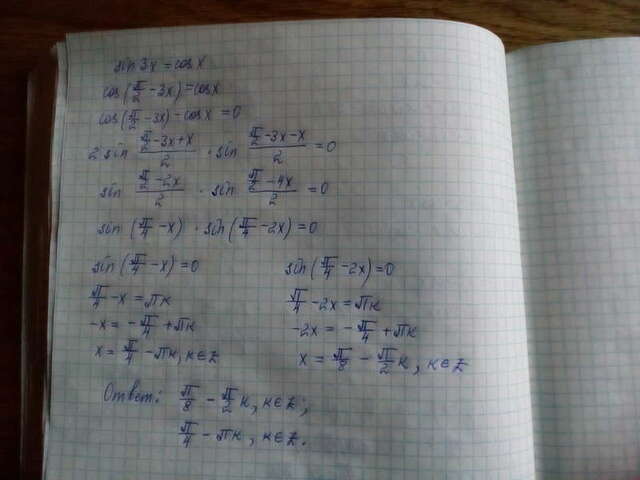 sin 3x = cos x
cos(π/2 - 3x) = cos x
cos(π/2 - 3x) - cos x = 0
2 sin (π/2 - 3x + x)/2 · sin (π/2 - 3x - x)/2 = 0
sin (π/2 - 2x)/2 · sin (π/2 - 4x)/2 = 0
sin (π/4 - x) · sin (π/4 - 2x) = 0
sin (π/4 - x) = 0
π/4 - x = πк
-x = -π/4 + πк
x = π/4 - πк, к∈Z
sin (π/4 - 2x) = 0
π/4 - 2x = πк
-2x = -π/4 + πк
x = π/8 - π/2 к, к∈Z
Ответ: π/8 - π/2 к, к∈Z;
π/4 - πк, к∈Z.